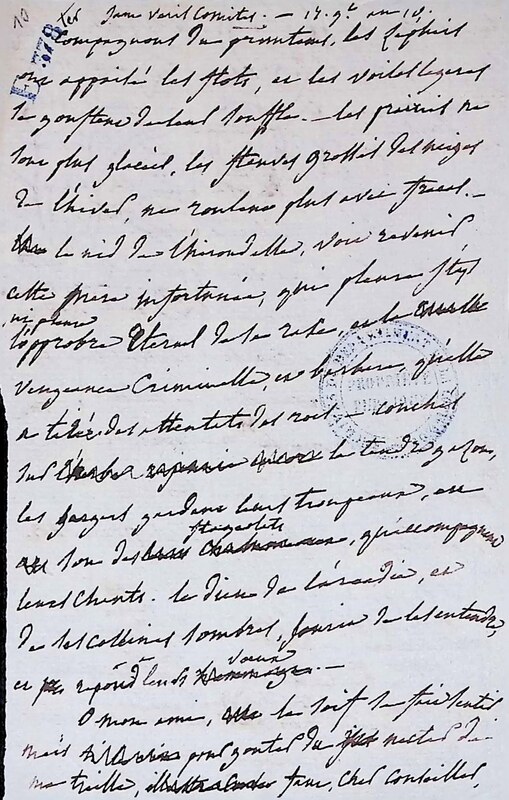 10
L 778
Jam Veris Comites. — 17. g. an 10.
Compagnons du printems, les Zephirs
ont appaisé les flots, et les voiles legeres
se gonflent de leur souffle. — les prairies ne
sont plus glacées, les fleuves grossis des neiges
de l'hiver, ne roulent plus avec fracas. —
le nid de l'hirondelle, voit revenir
cette mere infortunée, qui pleure Ityl
l'opprobre Eternel de sa race, et la
vengeance Criminelle, et barbare, qu'elle
a tirée des attentats des rois. — couchés
sur la tendre gazon,
les bergers gardent leurs troupeaux, et
au son des flageolets, qu'accompagnent
leurs chants. le dieu de l'arcadie, et
de ses collines sombres, sourit de les entendre,
et répond à leurs voeux. —
O mon ami, la soif se fait sentir
mais pour gouter du nectar de
ma treille, il faut, cher conseiller,